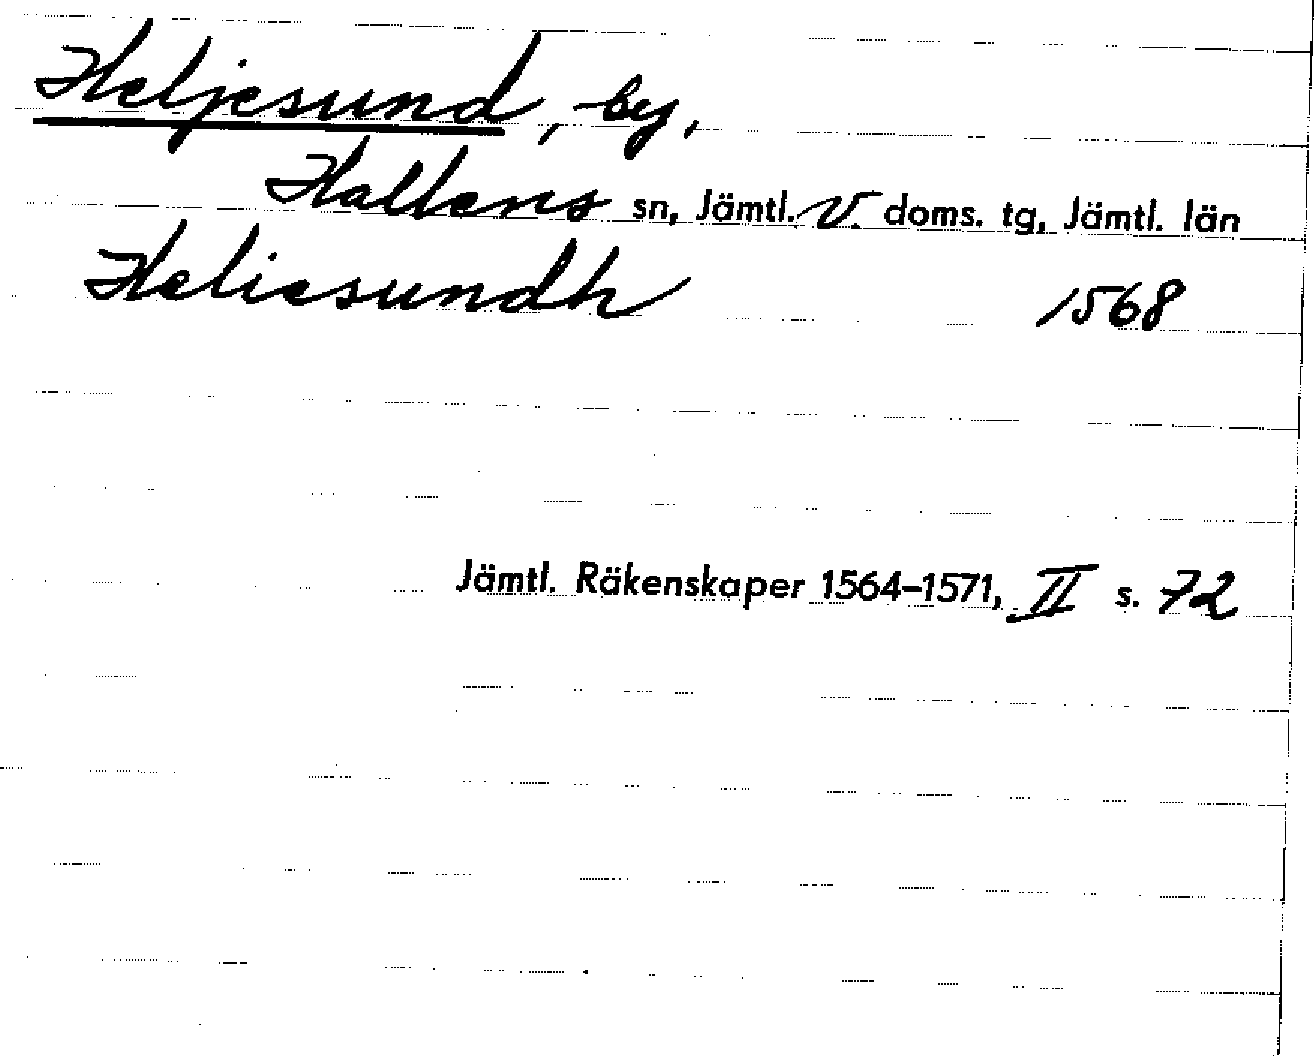 Heljesund, by,
Hallens sn, Jämtl. V. doms. tg, Jämtl. län
Heliesundh 1568
Jämtl. Räkenskaper 1564–1571, II s. 72